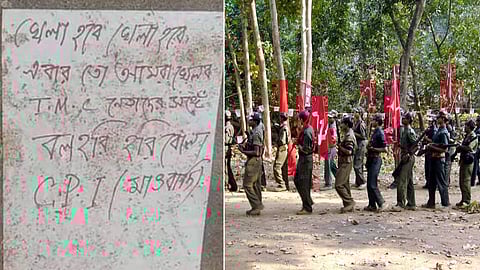 খেলা হবে খেলা হবে
এবার তো আমরা খেলব
T.M.C নেতাদের সঙ্গে
বলহরি হরি বোল
C.P.I (মাওবাদী)